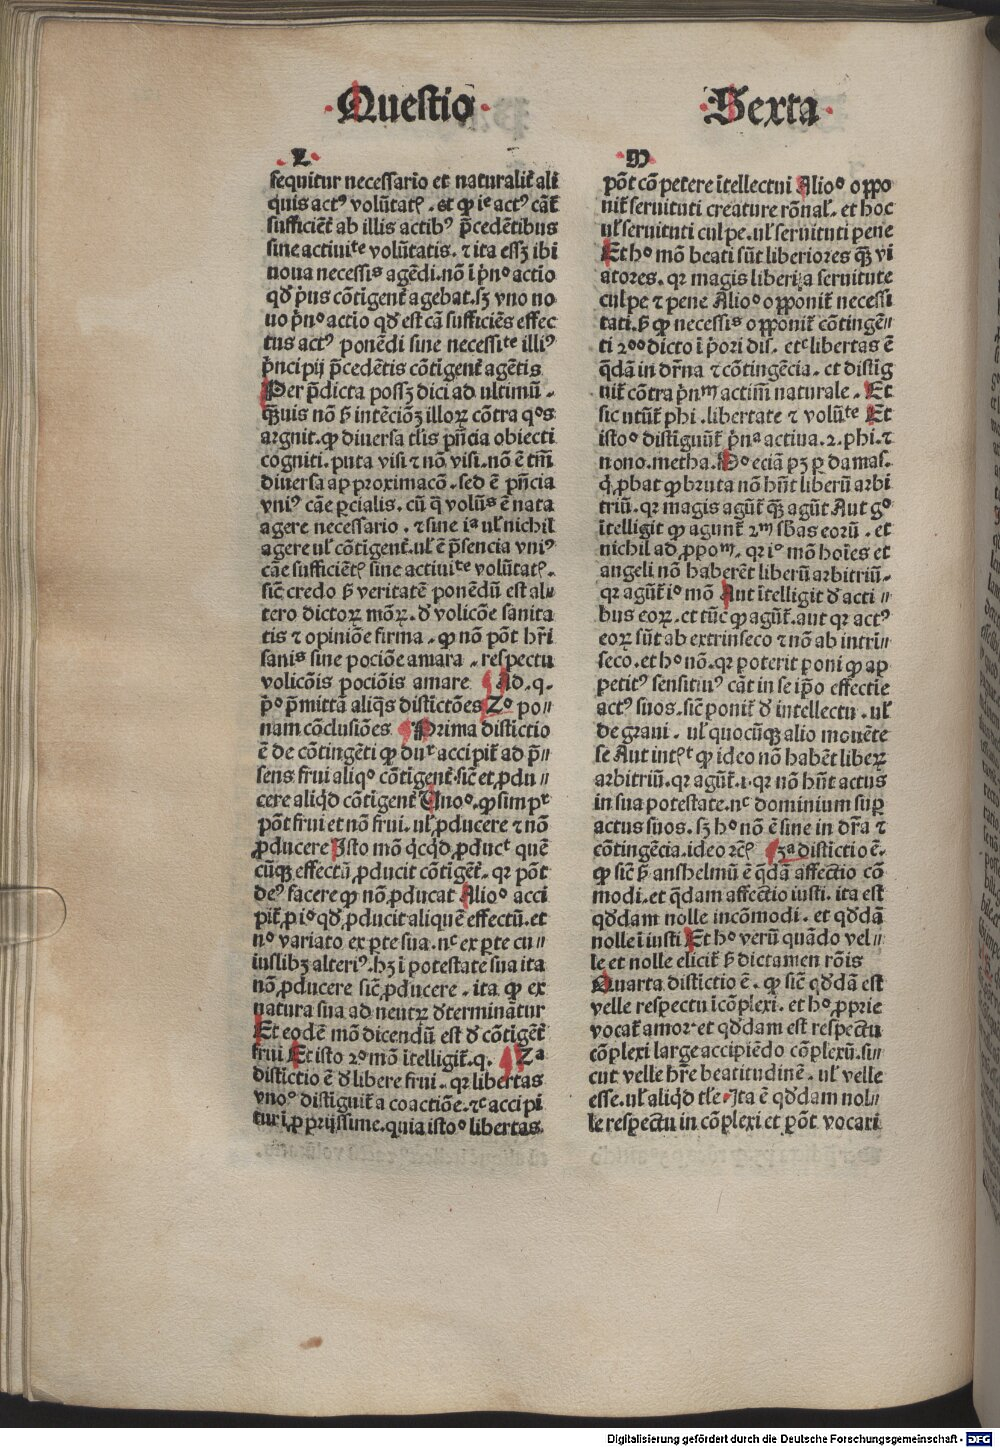 Questio
Sexta
L
sequitur necessario et naturalit̄ ali
quis actꝰ volūtatꝭ . et ꝙ iᵉ actꝰ cāt̄
sufficiēt̄ ab illis actibꝰ p̄cedētibus
sine actiuiᵗᵉ volūtatis . ⁊ ita essꝫ ibi
noua necessiˢ agēdi. nō ī p̄nᵒ actio
qd̄ p̄us cōtīgent̄ agebat. sꝫ vno no
uo p̄nᵒ actio qd̄ est cā sufficiēs effec
tus actꝰ ponēdi sine necessiᵗᵉ illiꝰ
p̄ncipij p̄cedētis cōtīgent̄ agētis
Per p̄dicta possꝫ dici ad ultimū .
quis nō intēciōꝫ illoꝝ cōtra qᵒs
arguit. ꝙ diuersa tl̄is pn̄cia obiecti
cogniti . puta visi ⁊ nō visi . nō ē tm̄
diuersa approximacō . sed ē pn̄cia
vniꝰ cāe ꝑcialis . cū q̄ volūˢ ē nata
agere necessario . ⁊ sine iᵃ ul̄ nichil
agere ul̄ cōtīgent̄. ul̄ ē p̄sencia vniꝰ
cāe sufficiētꝭ sine actiuiᵗᵉ volūtatꝭ .
sic̄ credo veritatē ponēdū est al〃
tero dictoꝝ mōꝝ . ꝺ̄ volicōe sanita
tis ⁊ opiniōe firma . ꝙ nō pōt hr̄i
sanis sine pociōe amara . respectu
volicōis pociōis amare Ad . q .
p̄ᵒ p̄mittā aliqˢ distīctōes 2ᵒ po〃
nam cōclusiōes Prima distīctio
ē de cōtīgēti ꝙ duʳ accipit̄ ad p̄〃
sens frui aliqᵒ cōtīgent̄. sic̄ et ꝓdu〃
cere aliqd̄ cōtīgent̄ Unoᵒ . ꝙ simpʳ
pōt frui et nō frui . ul̄ ꝓducere ⁊ nō
ꝓducere Isto mō q̇cqd̄ ꝓduct̄ quē
cūqꝫ effectū ꝓducit cōtīgēt̄ . qꝛ pōt
deꝰ facere ꝙ nō ꝓducat Alioᵒ acci
pit̄ ꝓ iᵒ qd̄ ꝓducit aliquē effectū . et
nᵒ variato ex ꝑte sua . nᶜ ex ꝑte cu〃
iuslibꝫ alteriꝰ. hꝫ ī potestate sua ita
nō ꝓducere sic̄ ꝓducere . ita ꝙ ex
natura sua ad neutꝝ ꝺ̄terminātur
Et eodē mō dicendū est ꝺ̄ cōtīgēt̄
frui Et isto 2ᵒ mō ītelligit̄ . q . 2ᵃ
distīctio ē ꝺ̄ libere frui . qꝛ libertas
vnoᵒ distīguit̄ a coactiōe . ⁊ᶜ accipi
tur ī ꝓprijssime . quia istoᵒ libertas
M
pōt cōpetere ītellectui Alioᵒ oppo
nit̄ seruituti creature rōnal̄ . et hoc
ul̄ seruituti culpe. ul̄ seruituti pene
Et hᵒ mō beati sūt liberiores qꝫ vi
atores . qꝛ magis liberi a seruitute
culpe ⁊ pene Alioᵒ opponit̄ necessi
tati . ꝙ necessiˢ opponit̄ cōtingē〃
ti 2ᵒᵒ dicto ī p̄ori dis . etᶜ libertas ē
q̄dā in dr̄na ⁊ cōtīngēcia . et distīg
uit̄ cōtra p̄nᵐ actiuū naturale . Et
sic utūt̄ phi . libertate ⁊ volūᵗᵉ Et
istoᵒ distīguūt̄ p̄nᵃ actiua . 2 . phi . ⁊
nono . metha . Hᵒ eciā pꝫ ꝑ damas .
q̇ ꝓbat ꝙ bruta nō hn̄t liberū arbi
triū . qꝛ magis agūt̄ qꝫ agūt Aut gᵒ
ītelligit ꝙ agunt̄ 2ᵐ sb̄as eorū . et
nichil ad ꝓpoᵐ . qꝛ iᵒ mō hoīes et
angeli nō haberēt liberū arbitriū .
qꝛ agūt̄ iᵒ mō Aut ītelligit ꝺ̄ acti〃
bus eoꝝ . et tūc̄ ꝙ agūt̄ . aut qꝛ actꝰ
eoꝝ sūt ab extrinseco ⁊ nō ab intrī〃
seco . et hᵒ nō . qꝛ poterit poni ꝙ ap
petitꝰ sensitiuꝰ cāt in se ip̄o effectie
actꝰ suos . sic̄ ponit̄ ꝺ̄ intellectu . ul̄
de graui . ul̄ quocūqꝫ alio mouēte
se Aut intᵉˡt ꝙ ideo nō habēt liberꝝ
arbitriū . qꝛ agūt̄ . i . qꝛ nō hn̄t actus
in sua potestate . nᶜ dominium suꝑ
actus suos . sꝫ hᵒ nō ē sine in dr̄a ⁊
cōtīngēcia . ideo ⁊cꝭ 3ᵃ distīctio ē .
ꝙ sic̄ anshelmū ē q̄dā affectio cō
modi . et q̄dam affectio iusti . ita est
qd̄dam nolle incōmodi . et qd̄dā
nolle ī iusti Et hᵒ verū quādo vel〃
le et nolle elicit̄ dictamen rōis
Quarta distīctio ē . ꝙ sic̄ qd̄dā est
velle respectu īcōplexi . et hᵒ ꝓprie
vocat̄ amor . et qd̄dam est respectu
cōplexi large accipiēdo cōplexū . si〃
cut velle hr̄e beatitudinē . ul̄ velle
esse . ul̄ aliqd̄ tl̄e . Ita ē qd̄dam nol〃
le respectu in cōplexi et pōt vocari
Digitalisierung gefördert durch die Deutsche Forschungsgemeinschaft - DFG